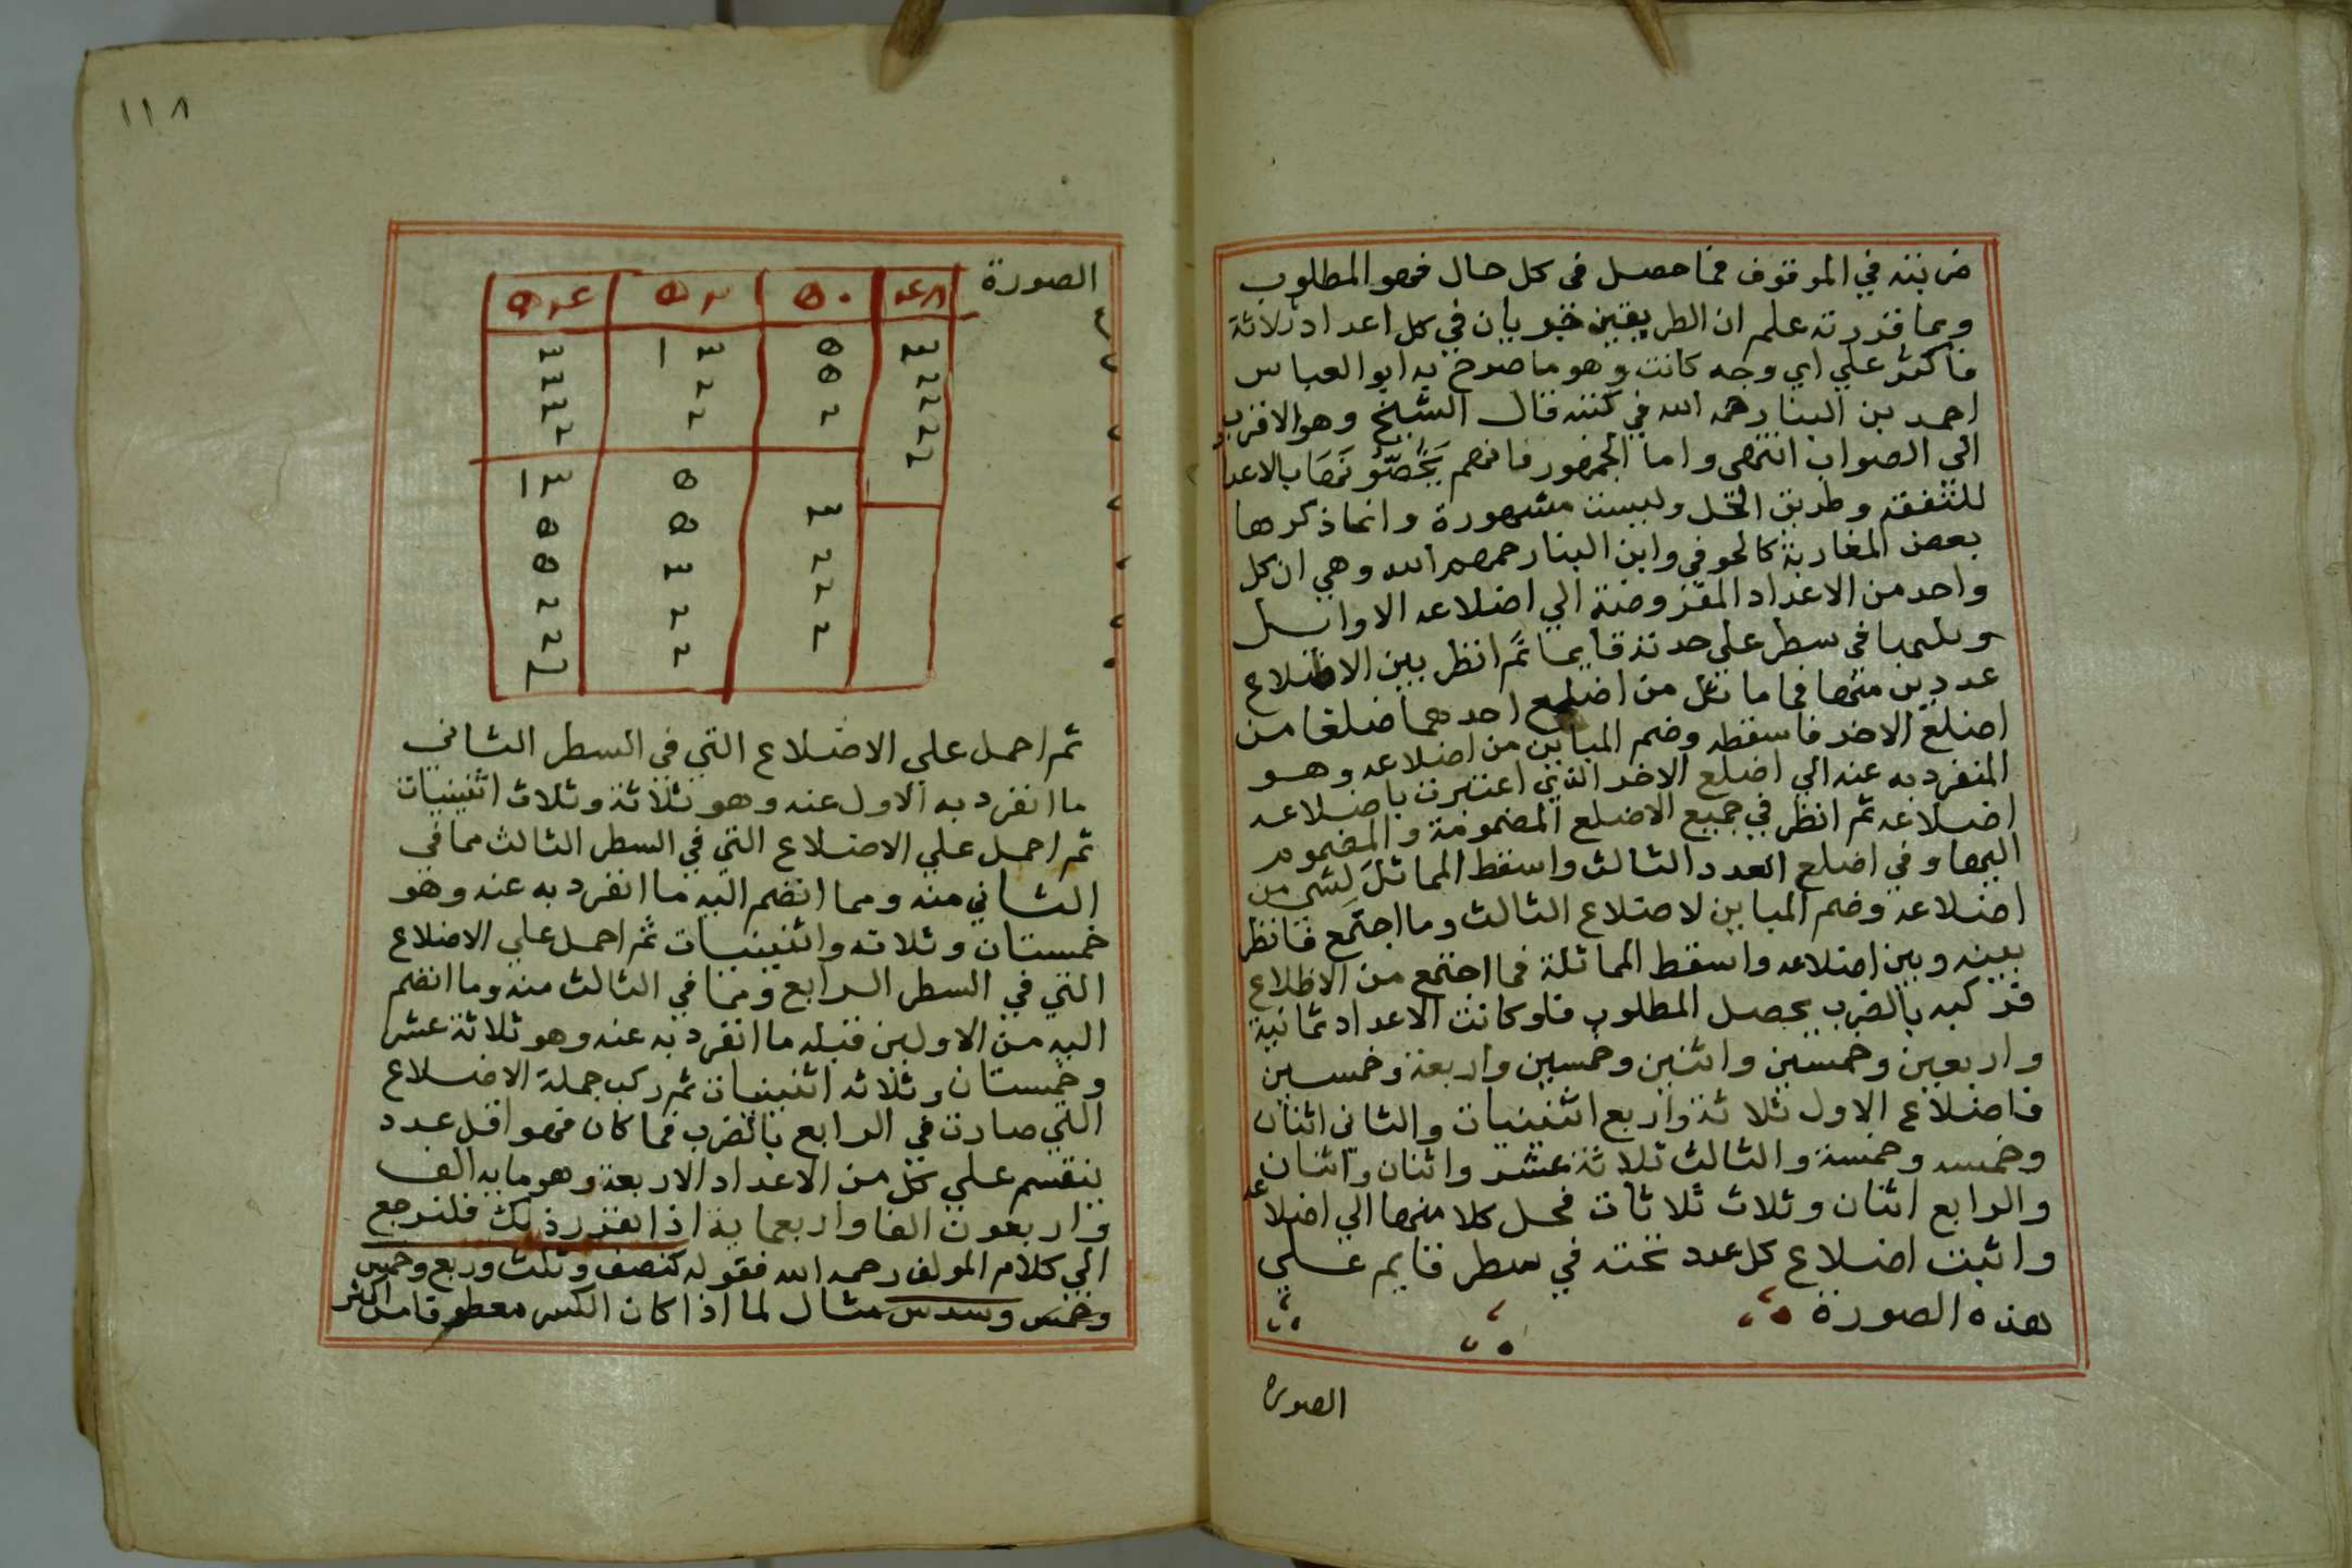 ضربته في الموقوف فما حصل في كل حال فهو المطلوب
وبما قررته علم ان الطريقين يجريان في كل اعداد ثلاثة
فاكثر علي اي وجه كانت وهو ما صرح به ابو العباس
احمد بن البنا رحمه الله في كتبه قال الشيخ وهو الاقرب
الي الصواب انتهي واما الجمهور فانهم يخصونها بالاعداد
للتفقة وطريق الحل وليست مشهورة وانما ذكرها
بعض المغاربة كالحوفي وابن البنا رحمهم الله وهي ان كل
واحد من الاعداد المفروضة الي اضلاعه الاوايل
في سطر علي حدته قايما ثم انظر بين الاضلاع
عددين منها فما ماثل من اضلع احدهما ضلعا من
اضلع الاخر فاسقطه وضم المباين من اضلاعه وهو
المنفرد به عنه الي اضلع الاخر الذي اعتبرت باضلاعه
اضلاعه ثم انظر في جميع الاضلع المضمومة والمضموم
اليها وفي اضلع العدد الثالث واسقط المماثل لشي من
اضلاعه وضم المباين لاضلاع الثالث وما اجتمع فانظر
بينه وبين اضلاعه واسقط المماثلة فما اجتمع من الاظلاع
فركبه بالضرب يحصل المطلوب فلو كانت الاعداد ثمانية
واربعين وخمسين واثنين وخمسين واربعة وخمسين
فاضلاع الاول ثلاثة واربع اثنينيات والثاني اثنان
وخمسه وخمسة والثالث ثلاثة عشر واثنان واثنان
والرابع اثنان وثلاث ثلاثات فحل كلا منها الي اضلاعه
واثبت اضلاع كل عدد تحته في سطر قايم علي
هذه الصورة
الصوره
١١٨
الصورة
٤٨ ٥٠ ٥٢ ٥٤
٣ ٥ ١٣ ٣
٢ ٥ ٢ ٣
٢ ٢ ٢ ٣
٢ ٢
٢
٥ ١٣
٣ ٥ ٥
٢ ٣ ٥
٢ ٢ ٢
٢ ٢ ٢
ثم احمل علي الاضلاع التي في السطر الثاني
ما انفرد به الاول عنه وهو ثلاثة وثلاث اثنينيات
ثم احمل علي الاضلاع التي في السطر الثالث مما في
الثاني منه ومما انضم اليه ما انفرد به عنه وهو
خمستان وثلاثه واثنينيات ثم احمل علي الاضلاع
التي في السطر الرابع ومما في الثالث منه وما انضم
اليه من الاولين قبله ما انفرد به عنه وهو ثلاثة عشر
وخمستان وثلاثه اثنينيات ثم ركب جملة الاضلاع
التي صارت في الرابع بالضرب فما كان فهو اقل عدد
ينقسم علي كل من الاعداد الاربعة وهو مايه الف
واربعون الفا واربعماية اذا تقرر ذلك فلنرجع
الي كلام المولف رحمه الله فقوله كنصف وثلث وربع وخمس
وخمس وسدس مثال لما اذا كان الكسر معطوفا من اكثر